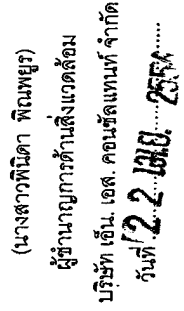 (นางสาวพินิดา พิณพยูร)
ผู้ชำนาญการด้านสิ่งแวดล้อม
บริษัท เอ็น. เอส. คอนซัลแทนท์ จำกัด
วันที่ 22 เม.ย. 255